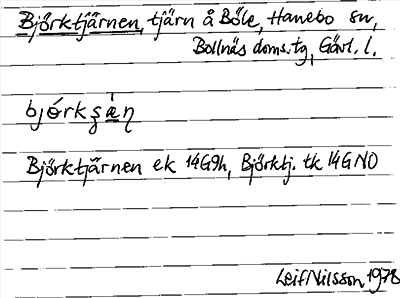 Björktjärnen, tjärn å Böle, Hanebo sn,
Bollnäs doms.tg, Gävl. l.
Björktjärnen ek 14G9h, Björktj. tk 14GNO
Leif Nilsson 1978